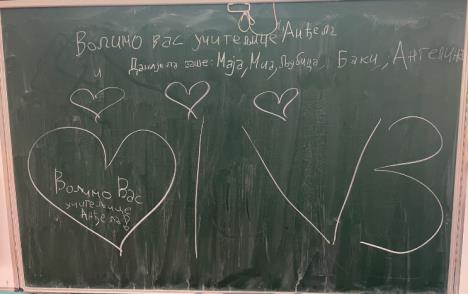 Волимо вас учитељице Анђела
и Данијела ваше: Маја, Миа, Љубица, Баки, Ангелина
Волимо Вас
учитељице
Анђела
I V 3